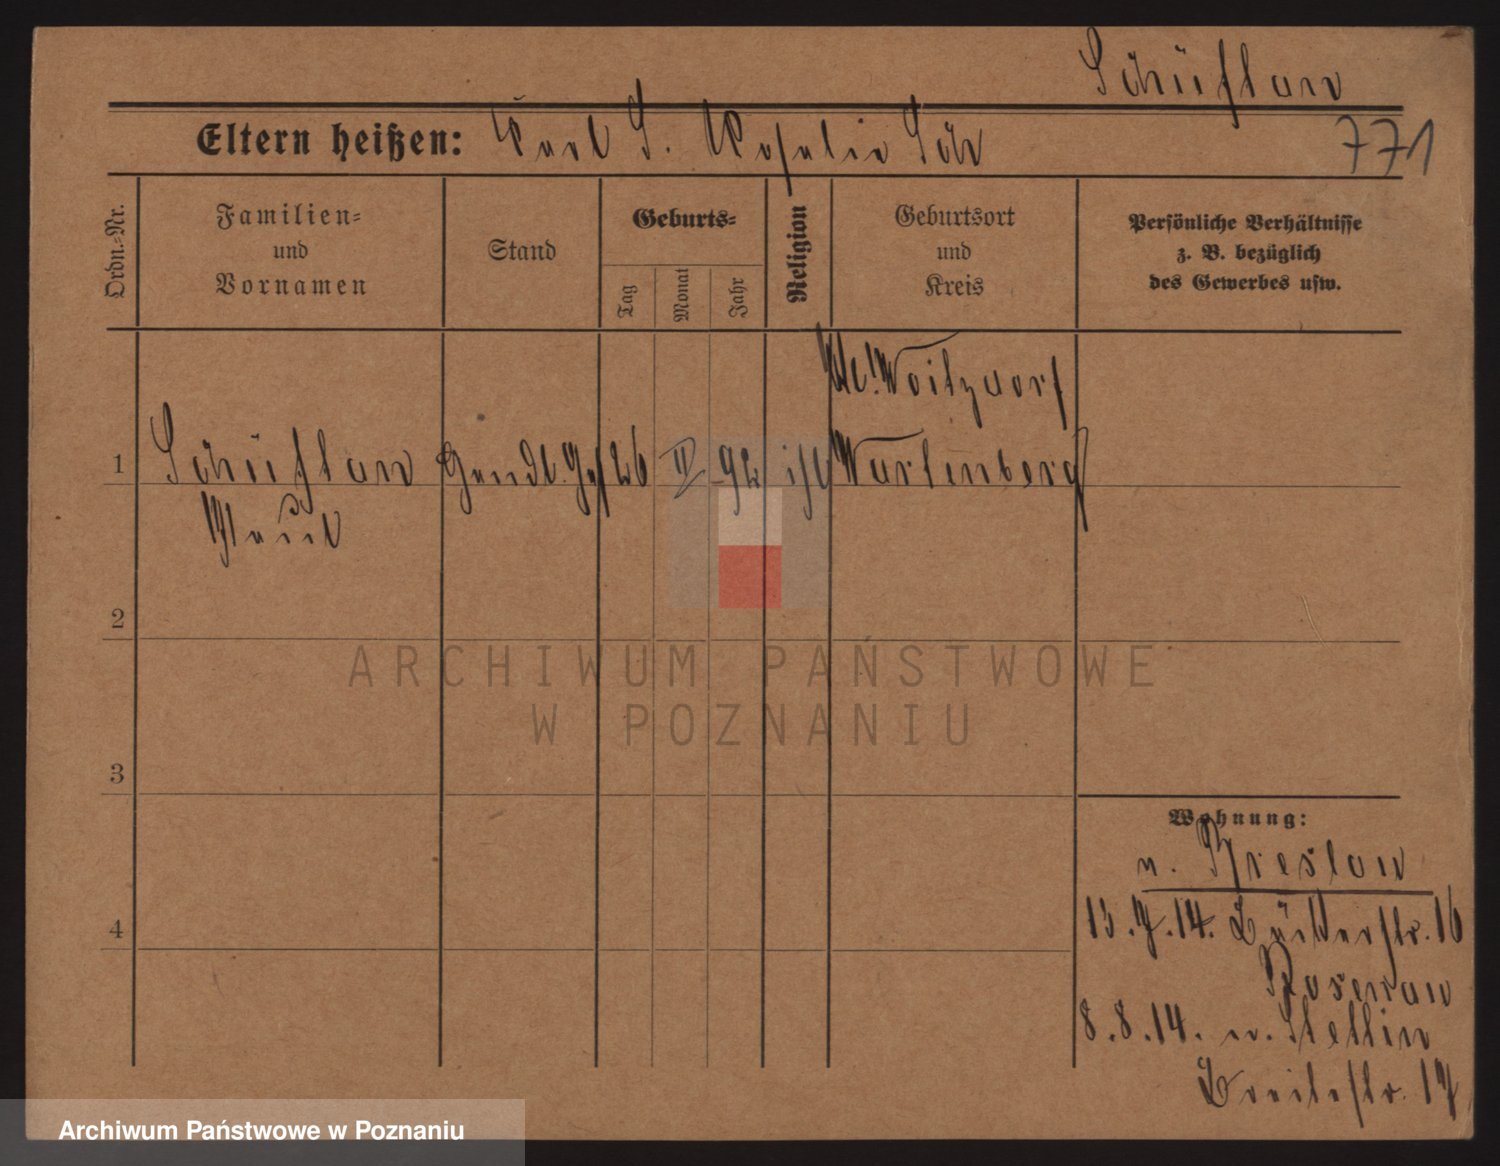 Schüftan
771
Eltern heißen: Karl S. Rosalie
Ordn.=Nr.
Familien=
und
Vornamen
Stand
Geburts=
Tag
Monat
Jahr
Religion
Geburtsort
und
Kreis
Persönliche Verhältnisse
z. B. bezüglich
des Gewerbes usw.
Woitzdorf
1 Schüftan Handl. Geh 26 II 92 isr Wartenberg
2
3
4
Wohnung:
n. Breslau
13.7.14. 16
Posen
8.8.14. n. Stettin
Breitestr. 17
ARCHIWUM PAŃSTWOWE
W POZNANIU
Archiwum Państwowe w Poznaniu